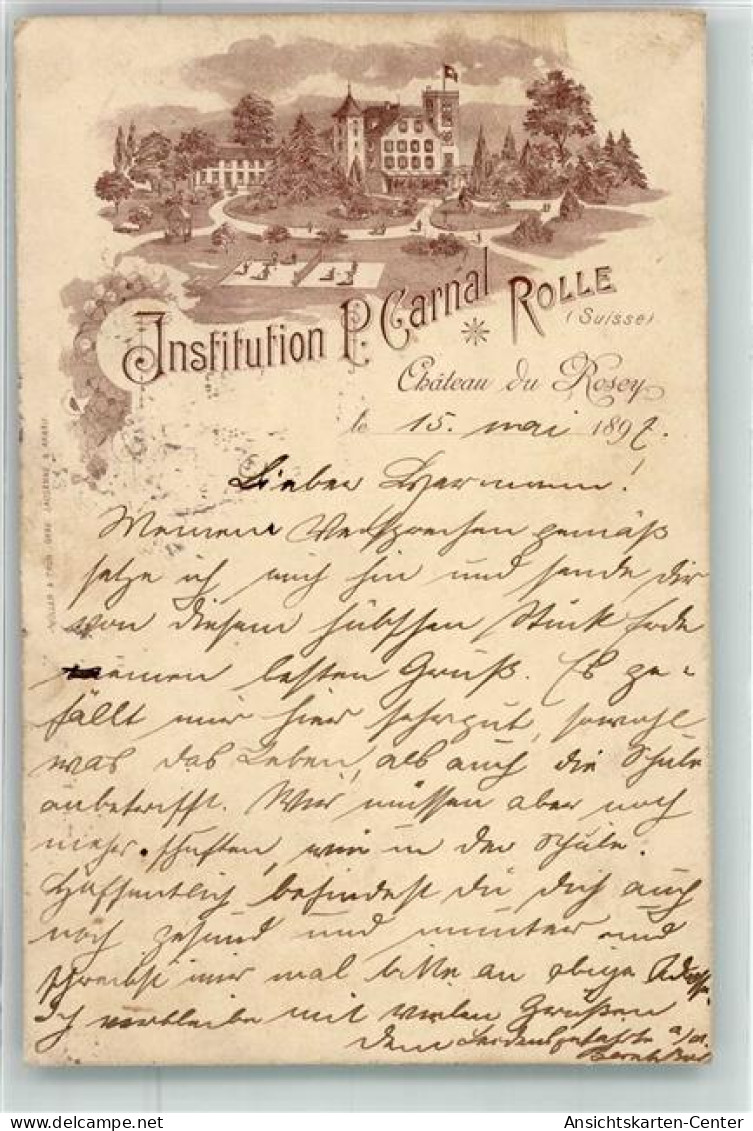 Institution P. Carnal
ROLLE
(Suisse)
Château du Rosey
le 15. mai 1897.
Lieber Hermann!
Meinem Versprechen gemäß
setze ich mich hin und sende dir
von diesem hübschen Stück Erde
meinen besten Gruß. Es ge-
fällt mir hier sehr gut, sowohl
was das Leben, als auch die Schule
anbetrifft. Wir müssen aber noch
mehr schuften, wie in der Schule.
Hoffentlich befindest du dich auch
noch gesund und munter und
schreibst mir mal bitte an obige Adresse.
Ich verbleibe mit vielen Grüßen
dein Leidensgefährte
MÜLLER & TRÜB GRAV. LAUSANNE & AARAU
Ansichtskarten-Center